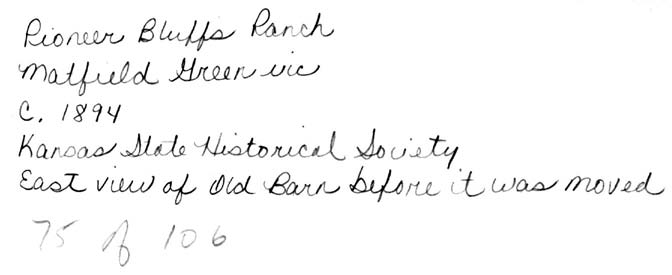 Pioneer Bluffs Ranch
Matfield Green vic
C. 1894
Kansas State Historical Society
East view of Old Barn before it was moved
75 of 106